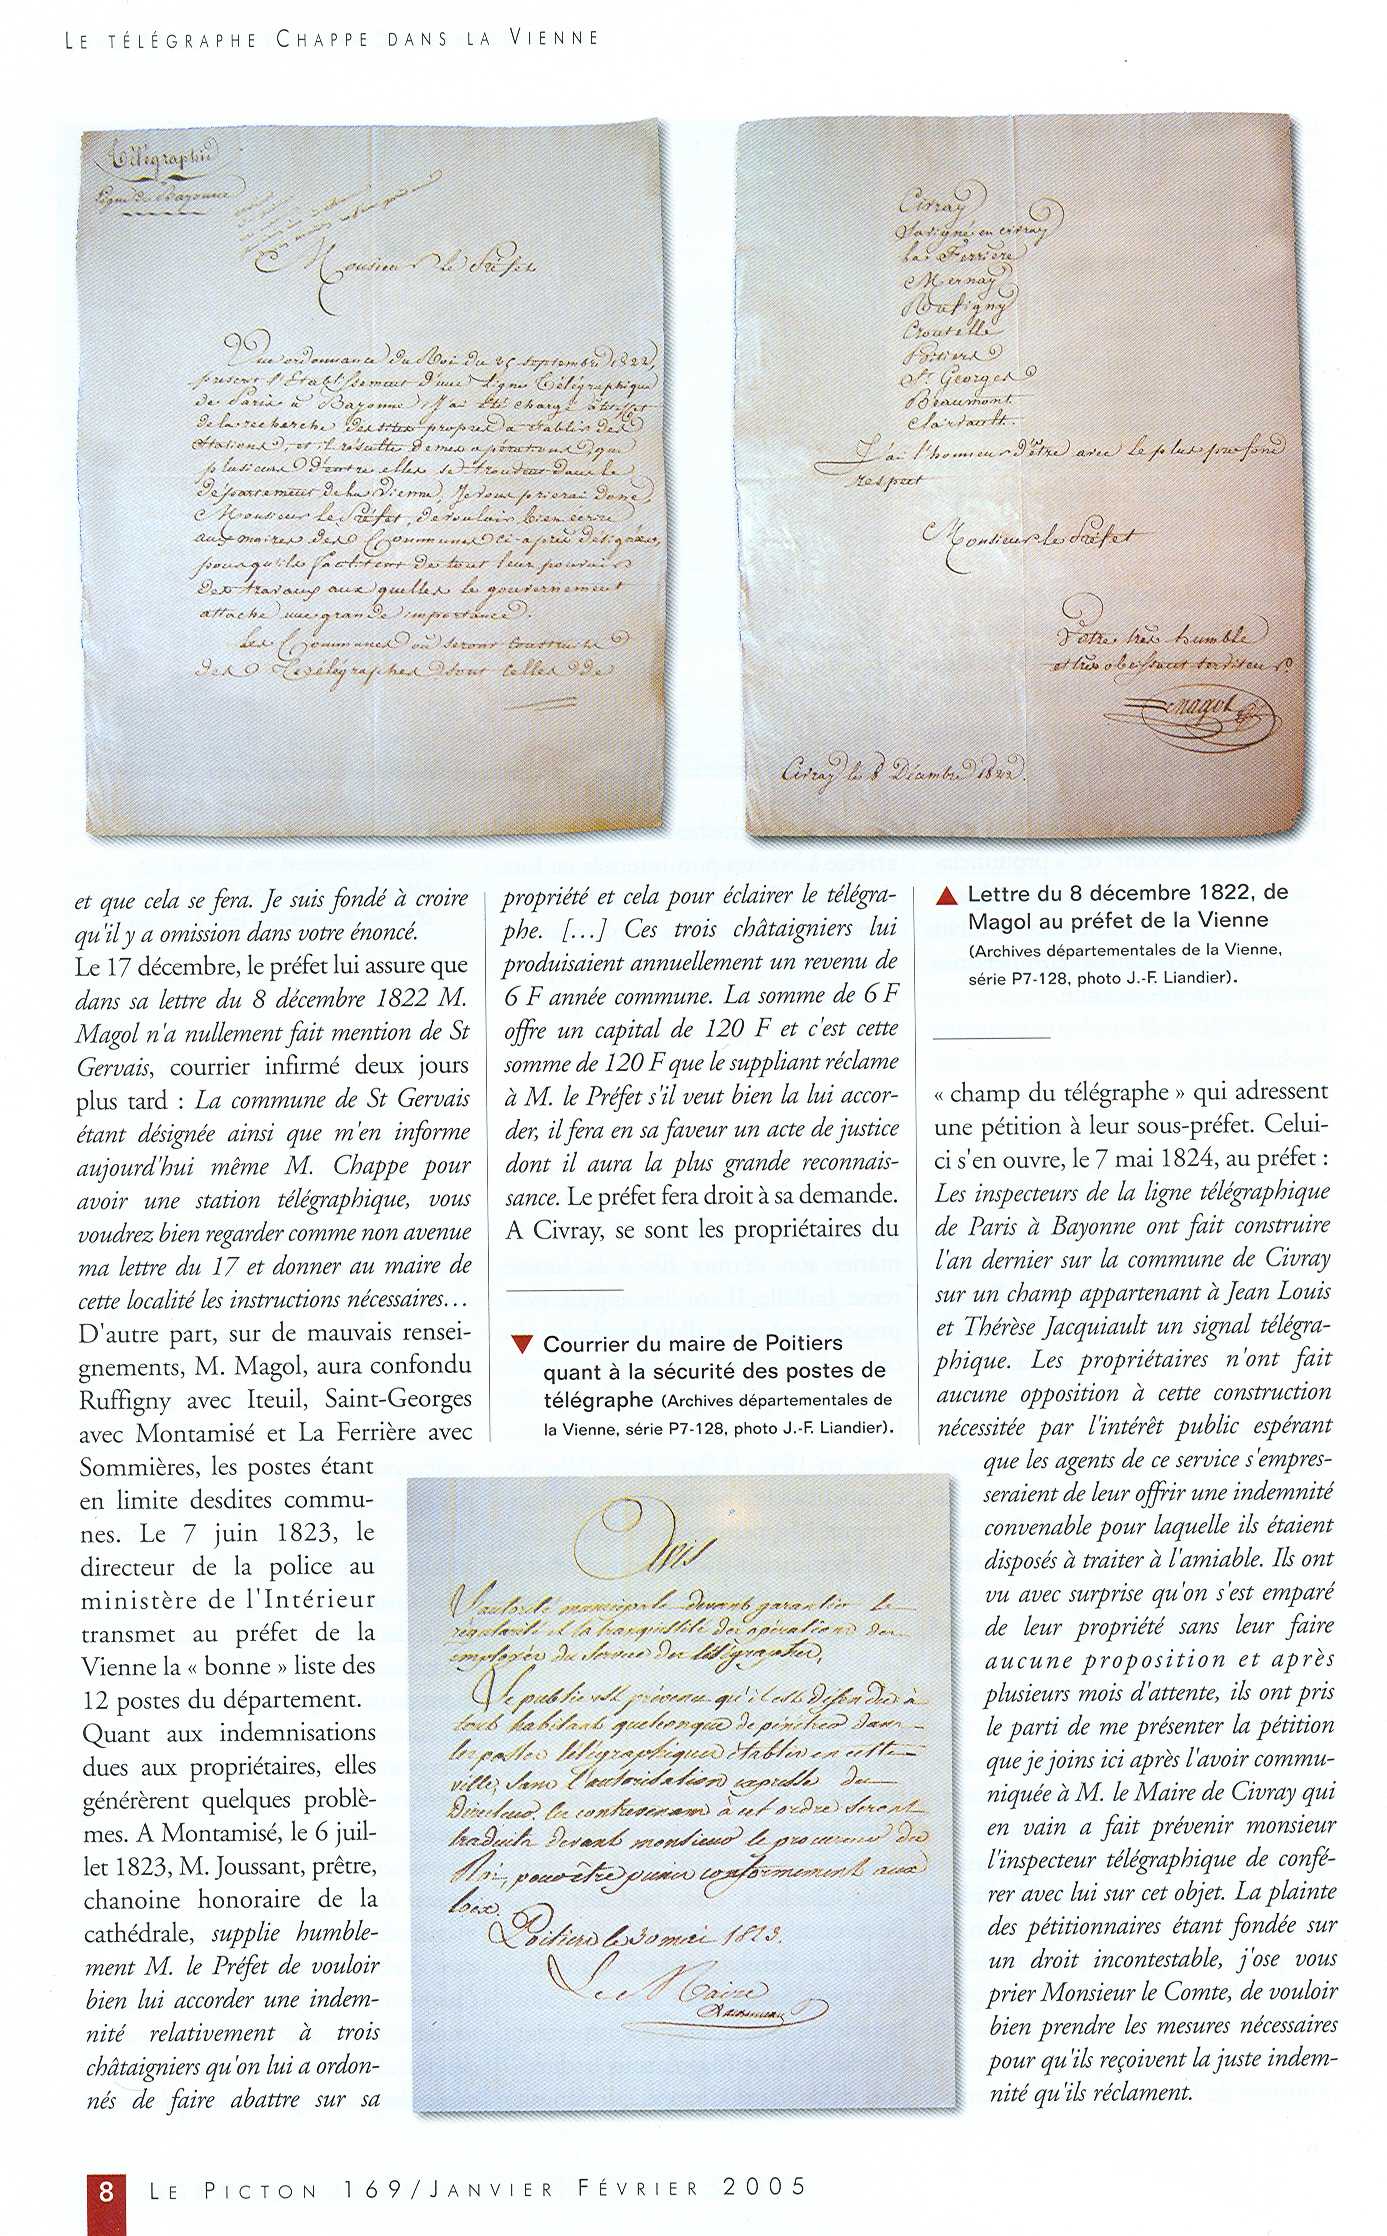 LE TÉLÉGRAPHE CHAPPE DANS LA VIENNE
Télégraphie
Ligne de Bayonne
Monsieur le Préfet
Une ordonnance du Roi du 25 septembre 1822,
présent l'Etablissement d'une Ligne Télégraphique
de Paris à Bayonne, j'ai été chargé
de la recherche des sites propres à établir des
Stations, et il résulte de mes opérations que
plusieurs d'entre elles se trouvent dans le
département de la Vienne, Je vous prierai donc,
Monsieur le Préfet, de vouloir bien écrire
aux maires des Communes ci-après désignées,
pour qu'ils facilitent de tout leur pouvoir
des travaux aux quelles le gouvernement
attache une grande importance.
Les Communes où seront construits
des Télégraphes sont celles de
Civray
Savigné en civray
La Ferrière
Mernay
Roufigny
Croutelle
Poitiers
St Georges
Beaumont
Clairvault.
J'ai l'honneur d'être avec le plus profond
respect
Monsieur le Préfet
Votre très humble
et très obeissant serviteur
Magol
Civray le 8 Décembre 1822.
et que cela se fera. Je suis fondé à croire
qu'il y a omission dans votre énoncé.
Le 17 décembre, le préfet lui assure que
dans sa lettre du 8 décembre 1822 M.
Magol n'a nullement fait mention de St
Gervais, courrier infirmé deux jours
plus tard : La commune de St Gervais
étant désignée ainsi que m'en informe
aujourd'hui même M. Chappe pour
avoir une station télégraphique, vous
voudrez bien regarder comme non avenue
ma lettre du 17 et donner au maire de
cette localité les instructions nécessaires…
D'autre part, sur de mauvais rensei-
gnements, M. Magol, aura confondu
Ruffigny avec Iteuil, Saint-Georges
avec Montamisé et La Ferrière avec
Sommières, les postes étant
en limite desdites commu-
nes. Le 7 juin 1823, le
directeur de la police au
ministère de l'Intérieur
transmet au préfet de la
Vienne la « bonne » liste des
12 postes du département.
Quant aux indemnisations
dues aux propriétaires, elles
générèrent quelques problè-
mes. A Montamisé, le 6 juil-
let 1823, M. Joussant, prêtre,
chanoine honoraire de la
cathédrale, supplie humble-
ment M. le Préfet de vouloir
bien lui accorder une indem-
nité relativement à trois
châtaigniers qu'on lui a ordon-
nés de faire abattre sur sa
propriété et cela pour éclairer le télégra-
phe. […] Ces trois châtaigniers lui
produisaient annuellement un revenu de
6 F année commune. La somme de 6 F
offre un capital de 120 F et c'est cette
somme de 120 F que le suppliant réclame
à M. le Préfet s'il veut bien la lui accor-
der, il fera en sa faveur un acte de justice
dont il aura la plus grande reconnais-
sance. Le préfet fera droit à sa demande.
A Civray, se sont les propriétaires du
▼ Courrier du maire de Poitiers
quant à la sécurité des postes de
télégraphe (Archives départementales de
la Vienne, série P7-128, photo J.-F. Liandier).
Avis
L'autorité municipale devant garantir la
régularité et la tranquillité des opérations des
employés du Service des télégraphes,
Le public est prévenu qu'il est défendu à
tout habitant quelconque de pénétrer dans
les postes télégraphiques établis en cette
ville, sans l'autorisation expresse du
Directeur. les contrevenans à cet ordre seront
traduits devant monsieur le procureur du
Roi, pour être punis conformément aux
loix.
Poitiers le 30 mai 1823.
Le Maire
▲ Lettre du 8 décembre 1822, de
Magol au préfet de la Vienne
(Archives départementales de la Vienne,
série P7-128, photo J.-F. Liandier).
« champ du télégraphe » qui adressent
une pétition à leur sous-préfet. Celui-
ci s'en ouvre, le 7 mai 1824, au préfet :
Les inspecteurs de la ligne télégraphique
de Paris à Bayonne ont fait construire
l'an dernier sur la commune de Civray
sur un champ appartenant à Jean Louis
et Thérèse Jacquiault un signal télégra-
phique. Les propriétaires n'ont fait
aucune opposition à cette construction
nécessitée par l'intérêt public espérant
que les agents de ce service s'empres-
seraient de leur offrir une indemnité
convenable pour laquelle ils étaient
disposés à traiter à l'amiable. Ils ont
vu avec surprise qu'on s'est emparé
de leur propriété sans leur faire
aucune proposition et après
plusieurs mois d'attente, ils ont pris
le parti de me présenter la pétition
que je joins ici après l'avoir commu-
niquée à M. le Maire de Civray qui
en vain a fait prévenir monsieur
l'inspecteur télégraphique de confé-
rer avec lui sur cet objet. La plainte
des pétitionnaires étant fondée sur
un droit incontestable, j'ose vous
prier Monsieur le Comte, de vouloir
bien prendre les mesures nécessaires
pour qu'ils reçoivent la juste indem-
nité qu'ils réclament.
8 LE PICTON 169/JANVIER FÉVRIER 2005